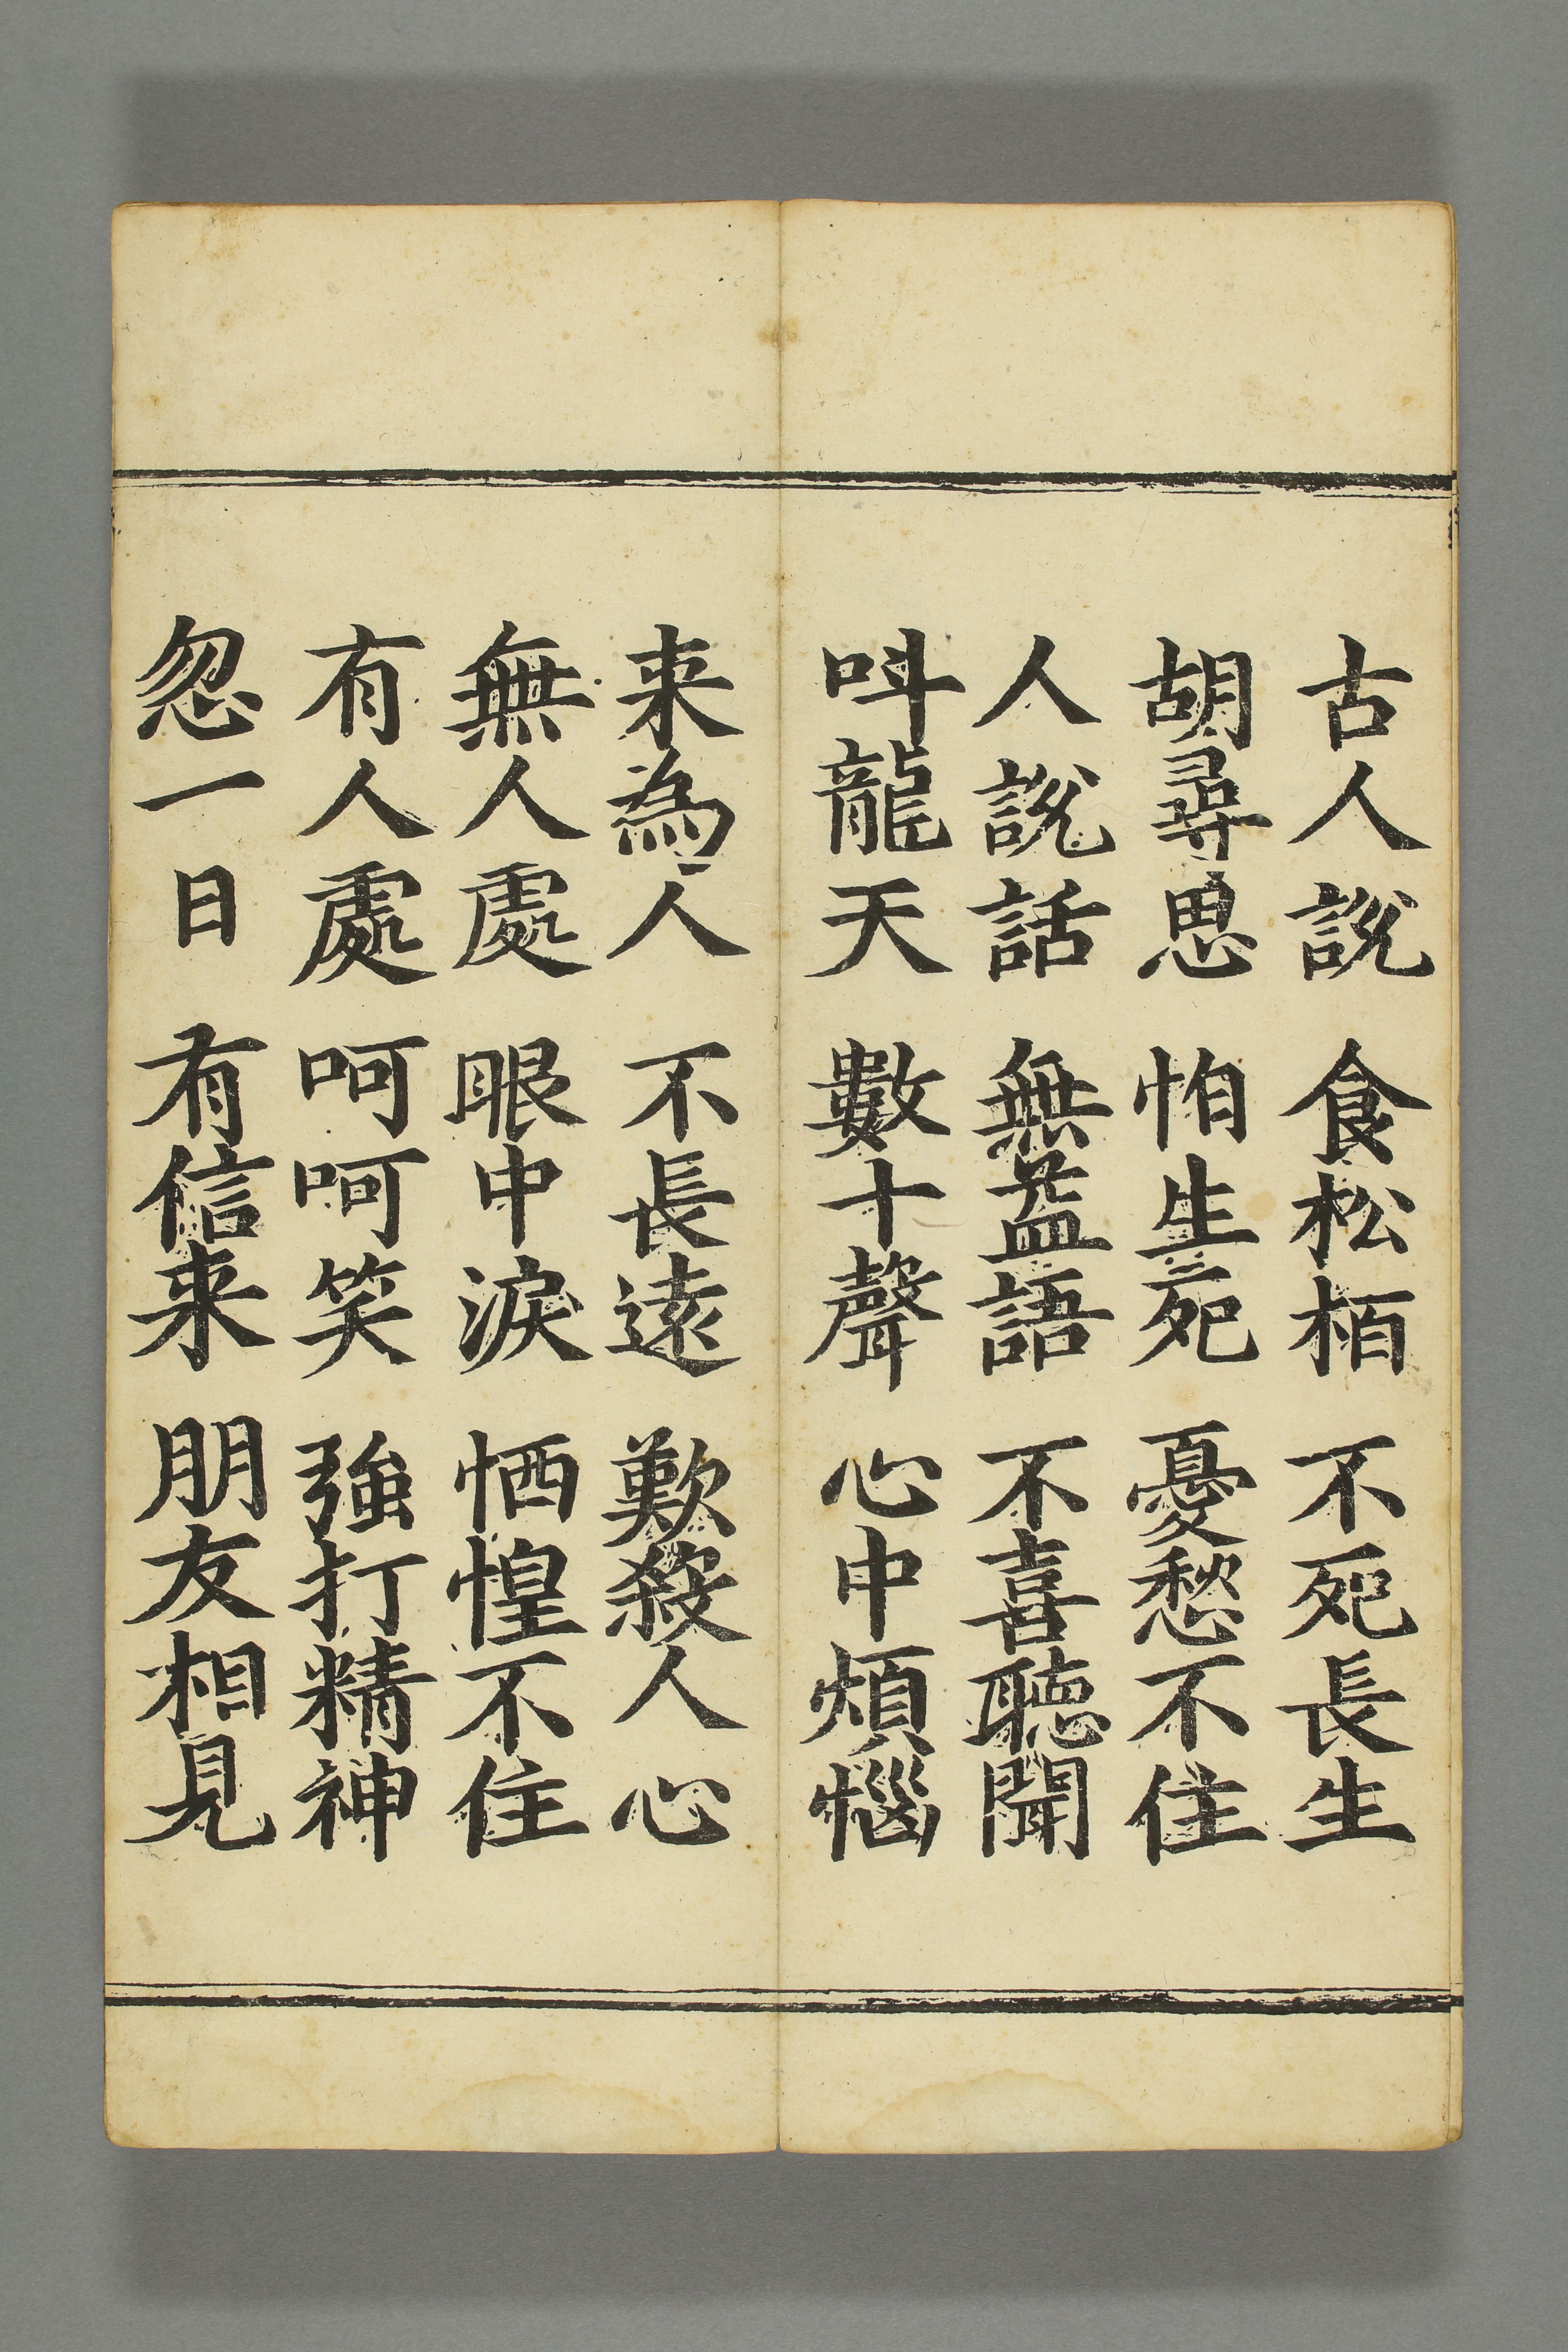 古人說 食松栢 不死長生
胡尋思 怕生死 憂愁不住
人說話 無益語 不喜聽聞
呌龍天 數十聲 心中煩惱
来為人 不長遠 歎殺人心
無人處 眼中淚 恓惶不住
有人處 呵呵笑 強打精神
忽一日 有信来 朋友相見